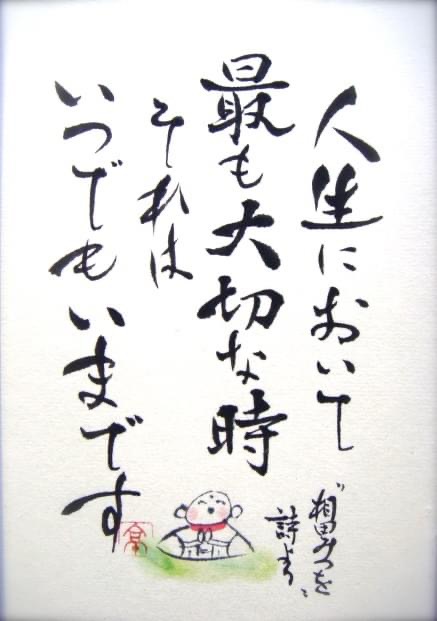 人生において
最も大切な時
それは
いつでもいまです
"相田みつを"
詩より